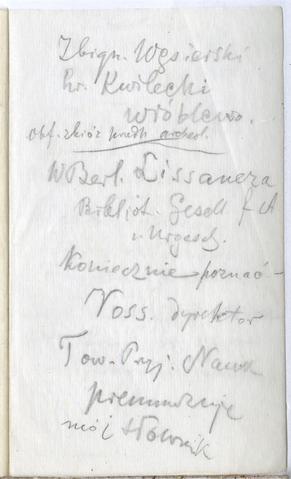 Zbign. Węsierski
hr. Kwilecki
Wróblewo.
Obf. zbiór przedh. archeol.
W Berl. Lissauera
Bibliot. Gesell f. A
u. Urgesch.
Koniecznie poznać –
Voss. dyrektor
Tow. Przyj. Nauk
prenumeruje
mój słownik